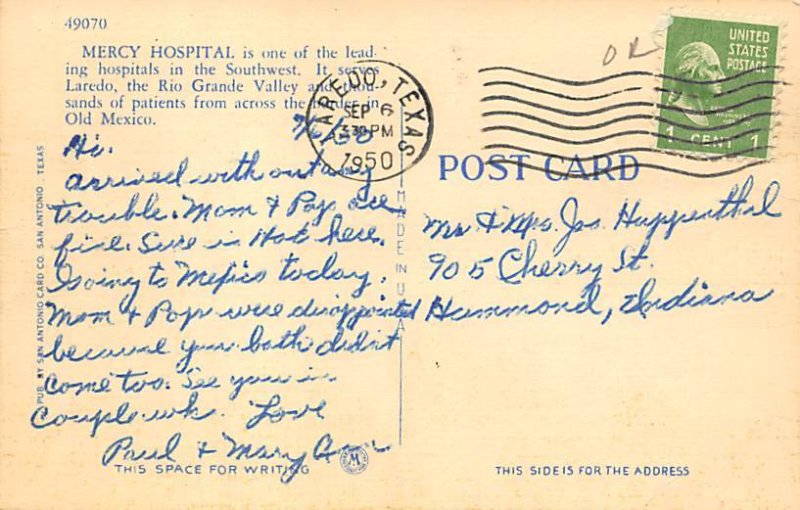 49070
MERCY HOSPITAL is one of the lead-
ing hospitals in the Southwest. It serves
Laredo, the Rio Grande Valley and thou-
sands of patients from across the border in
Old Mexico.
LAREDO, TEXAS
SEP 6
3 30 PM
1950
OR
UNITED
STATES
POSTAGE
1 CENT 1
POST CARD
Hi.
arrived without any
trouble. Mom & Pop are
fine. Sure is Hot here.
Going to Mexico today.
Mom & Pop were disappointed
because you both didn't
come too. See you in
couple wk. Love
Paul & Mary Ann
Mr & Mrs. Jos. Happenthal
905 Cherry St.
Hammond, Indiana
PUB. BY SAN ANTONIO CARD CO. SAN ANTONIO, TEXAS
MADE IN U.S.A.
THIS SPACE FOR WRITING
THIS SIDE IS FOR THE ADDRESS